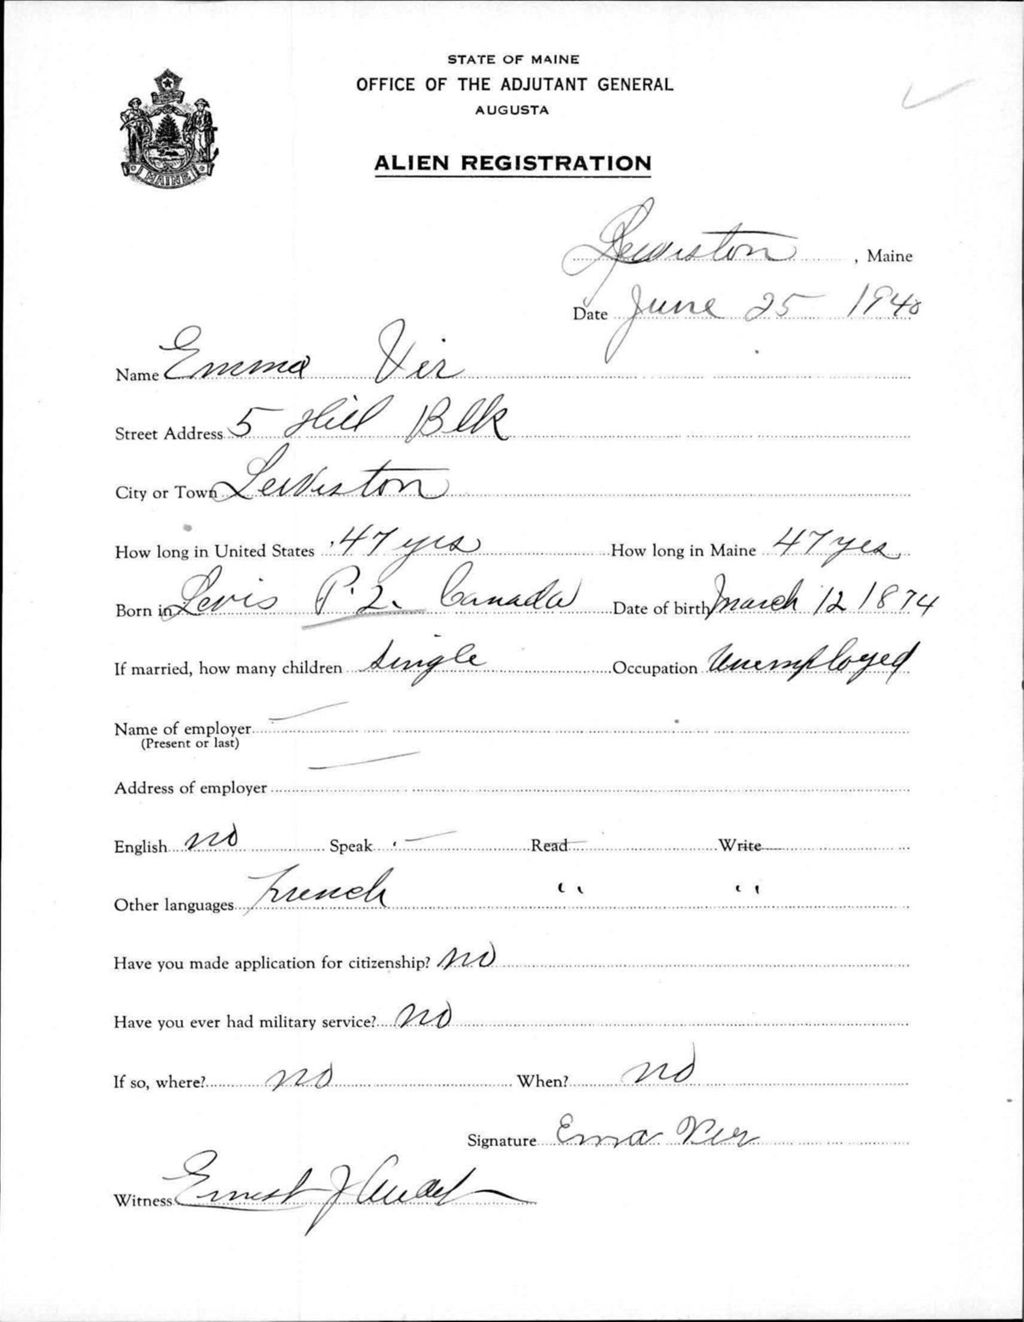 STATE OF MAINE
OFFICE OF THE ADJUTANT GENERAL
AUGUSTA
MAINE
ALIEN REGISTRATION
Lewiston, Maine
Date June 25 1940
Name Emma Vir
Street Address 5 Hill Blk
City or Town Lewiston
How long in United States 47 yrs How long in Maine 47 yes
Born in Levis P.Q. Canada Date of birth March 12 1874
If married, how many children Single Occupation Unemployed
Name of employer
(Present or last)
Address of employer
English no Speak — Read — Write —
Other languages French " "
Have you made application for citizenship? no
Have you ever had military service? no
If so, where? no When? no
Signature Ema Vir
Witness Ernest J